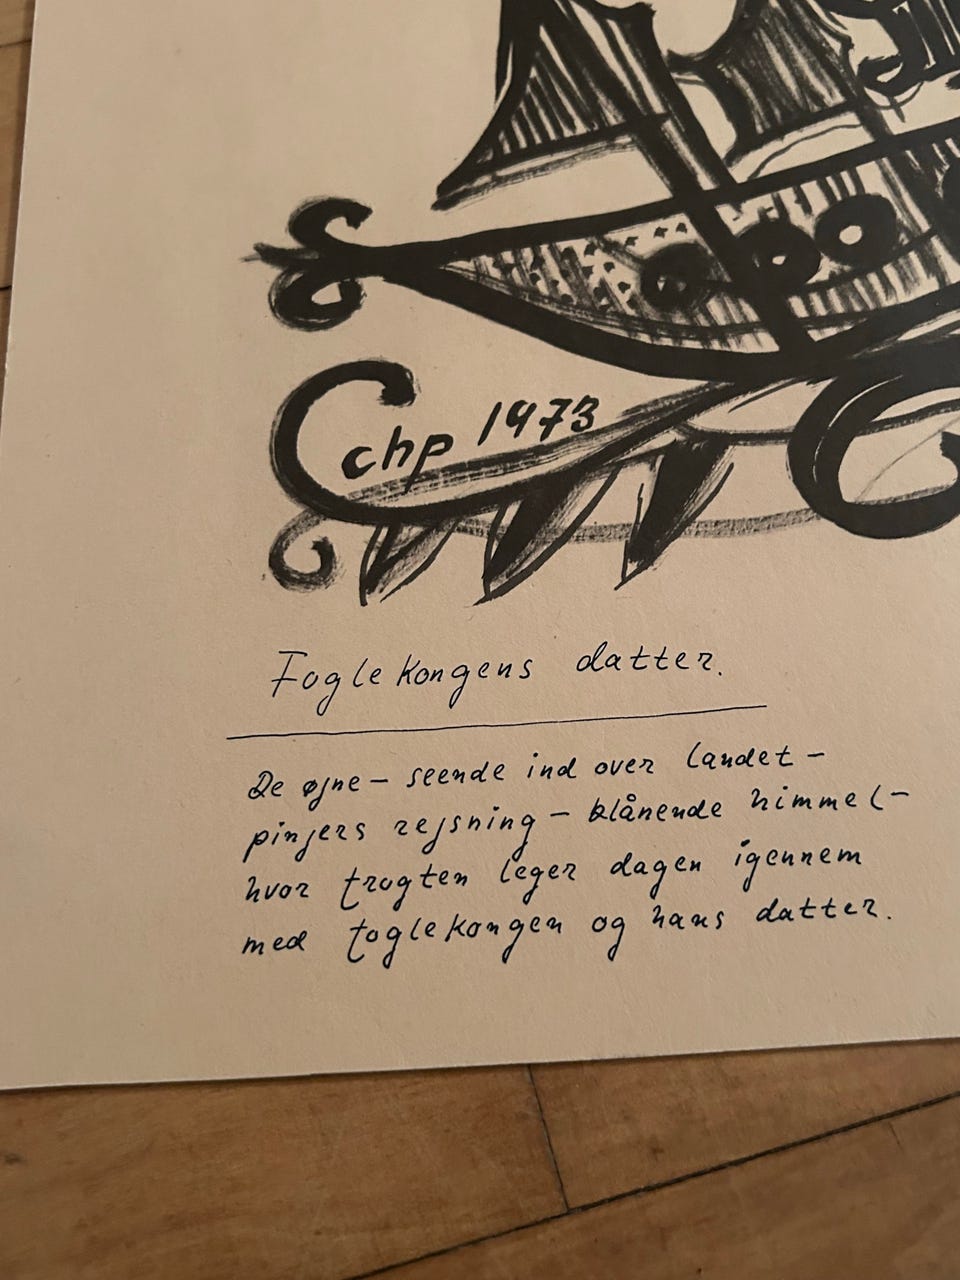 chp 1973
Foglekongens datter.
De øjne – seende ind over landet –
pinjers rejsning – blånende himmel –
hvor frygten leger dagen igennem
med foglekongen og hans datter.